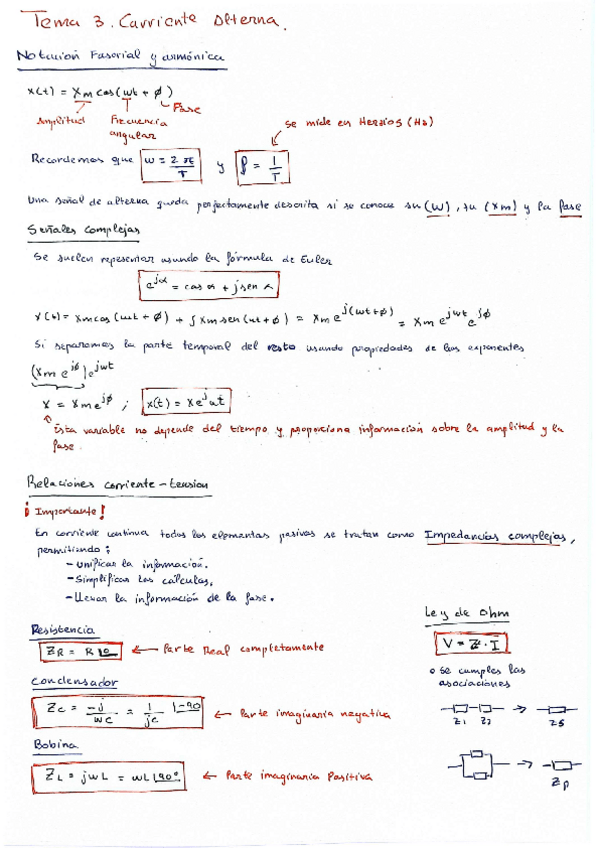 Tema 3. Corriente alterna.
Notación Fasorial y armónica
x(t) = Xm cos(ωt + φ)
Amplitud
Frecuencia angular
Fase
se mide en Hercios (Hz)
Recordemos que ω = 2π/T y f = 1/T
Una señal de alterna queda perfectamente descrita si se conoce su (W), su (Xm) y la fase
Señales complejas
Se suelen representar usando la fórmula de Euler
e^jα = cos α + j sen α
x(t) = Xm cos(ωt + φ) + j Xm sen(ωt + φ) = Xm e^j(ωt+φ) = Xm e^jωt e^jφ
Si separamos la parte temporal del resto usando propiedades de los exponentes
(Xm e^jφ) e^jωt
X = Xm e^jφ ; x(t) = X e^jωt
Esta variable no depende del tiempo y proporciona información sobre la amplitud y la
fase.
Relaciones corriente-tension
¡Importante!
En corriente continua todos los elementos pasivos se tratan como Impedancias complejas,
permitiendo:
- Unificar la información.
- Simplificar los cálculos.
- Llevar la información de la fase.
Ley de Ohm
V = Z · I
o se cumples las
asociaciones
Z1 Z2 → ZS
→ Zp
Resistencia
ZR = R |0 ← Parte Real completamente
Condensador
ZC = -j/ωC = 1/jC |-90 ← Parte imaginaria negativa
Bobina
ZL = jωL = ωL |90° ← Parte imaginaria Positiva